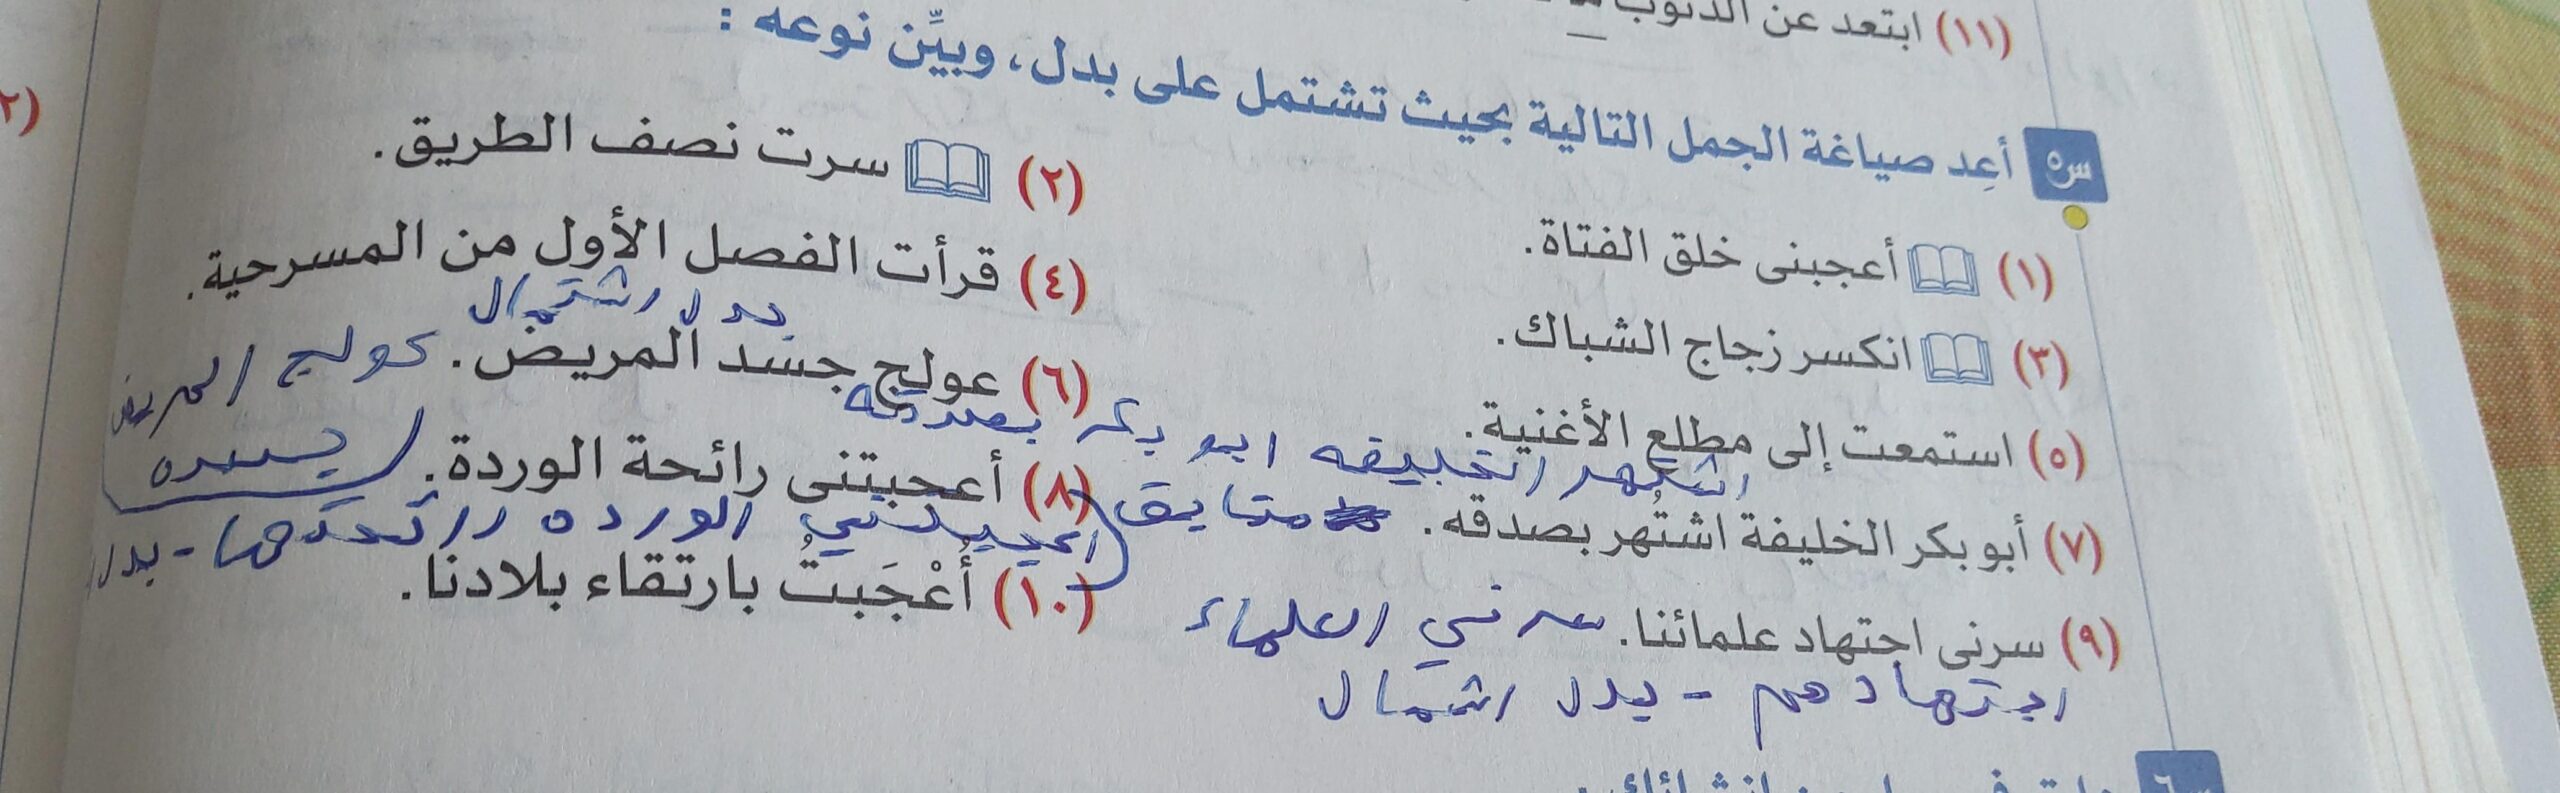 (١١) ابتعد عن الذنوب
س٥ أعِد صياغة الجمل التالية بحيث تشتمل على بدل، وبيِّن نوعه :
(١) أعجبنى خلق الفتاة.
(٢) سرت نصف الطريق.
(٣) انكسر زجاج الشباك.
(٤) قرأت الفصل الأول من المسرحية.
بدل اشتمال
(٥) استمعت إلى مطلع الأغنية.
(٦) عولج جسد المريض. عولج المريض
جسده
اشتهر الخليفه ابو بكر بصدقه
(٧) أبو بكر الخليفة اشتُهر بصدقه. مطابق
(٨) أعجبتنى رائحة الوردة.
اعجبتني الورده رائحتها - بدل
(٩) سرنى اجتهاد علمائنا. سرني العلماء
اجتهادهم - بدل اشتمال
(١٠) أُعْجَبتُ بارتقاء بلادنا.
س٦